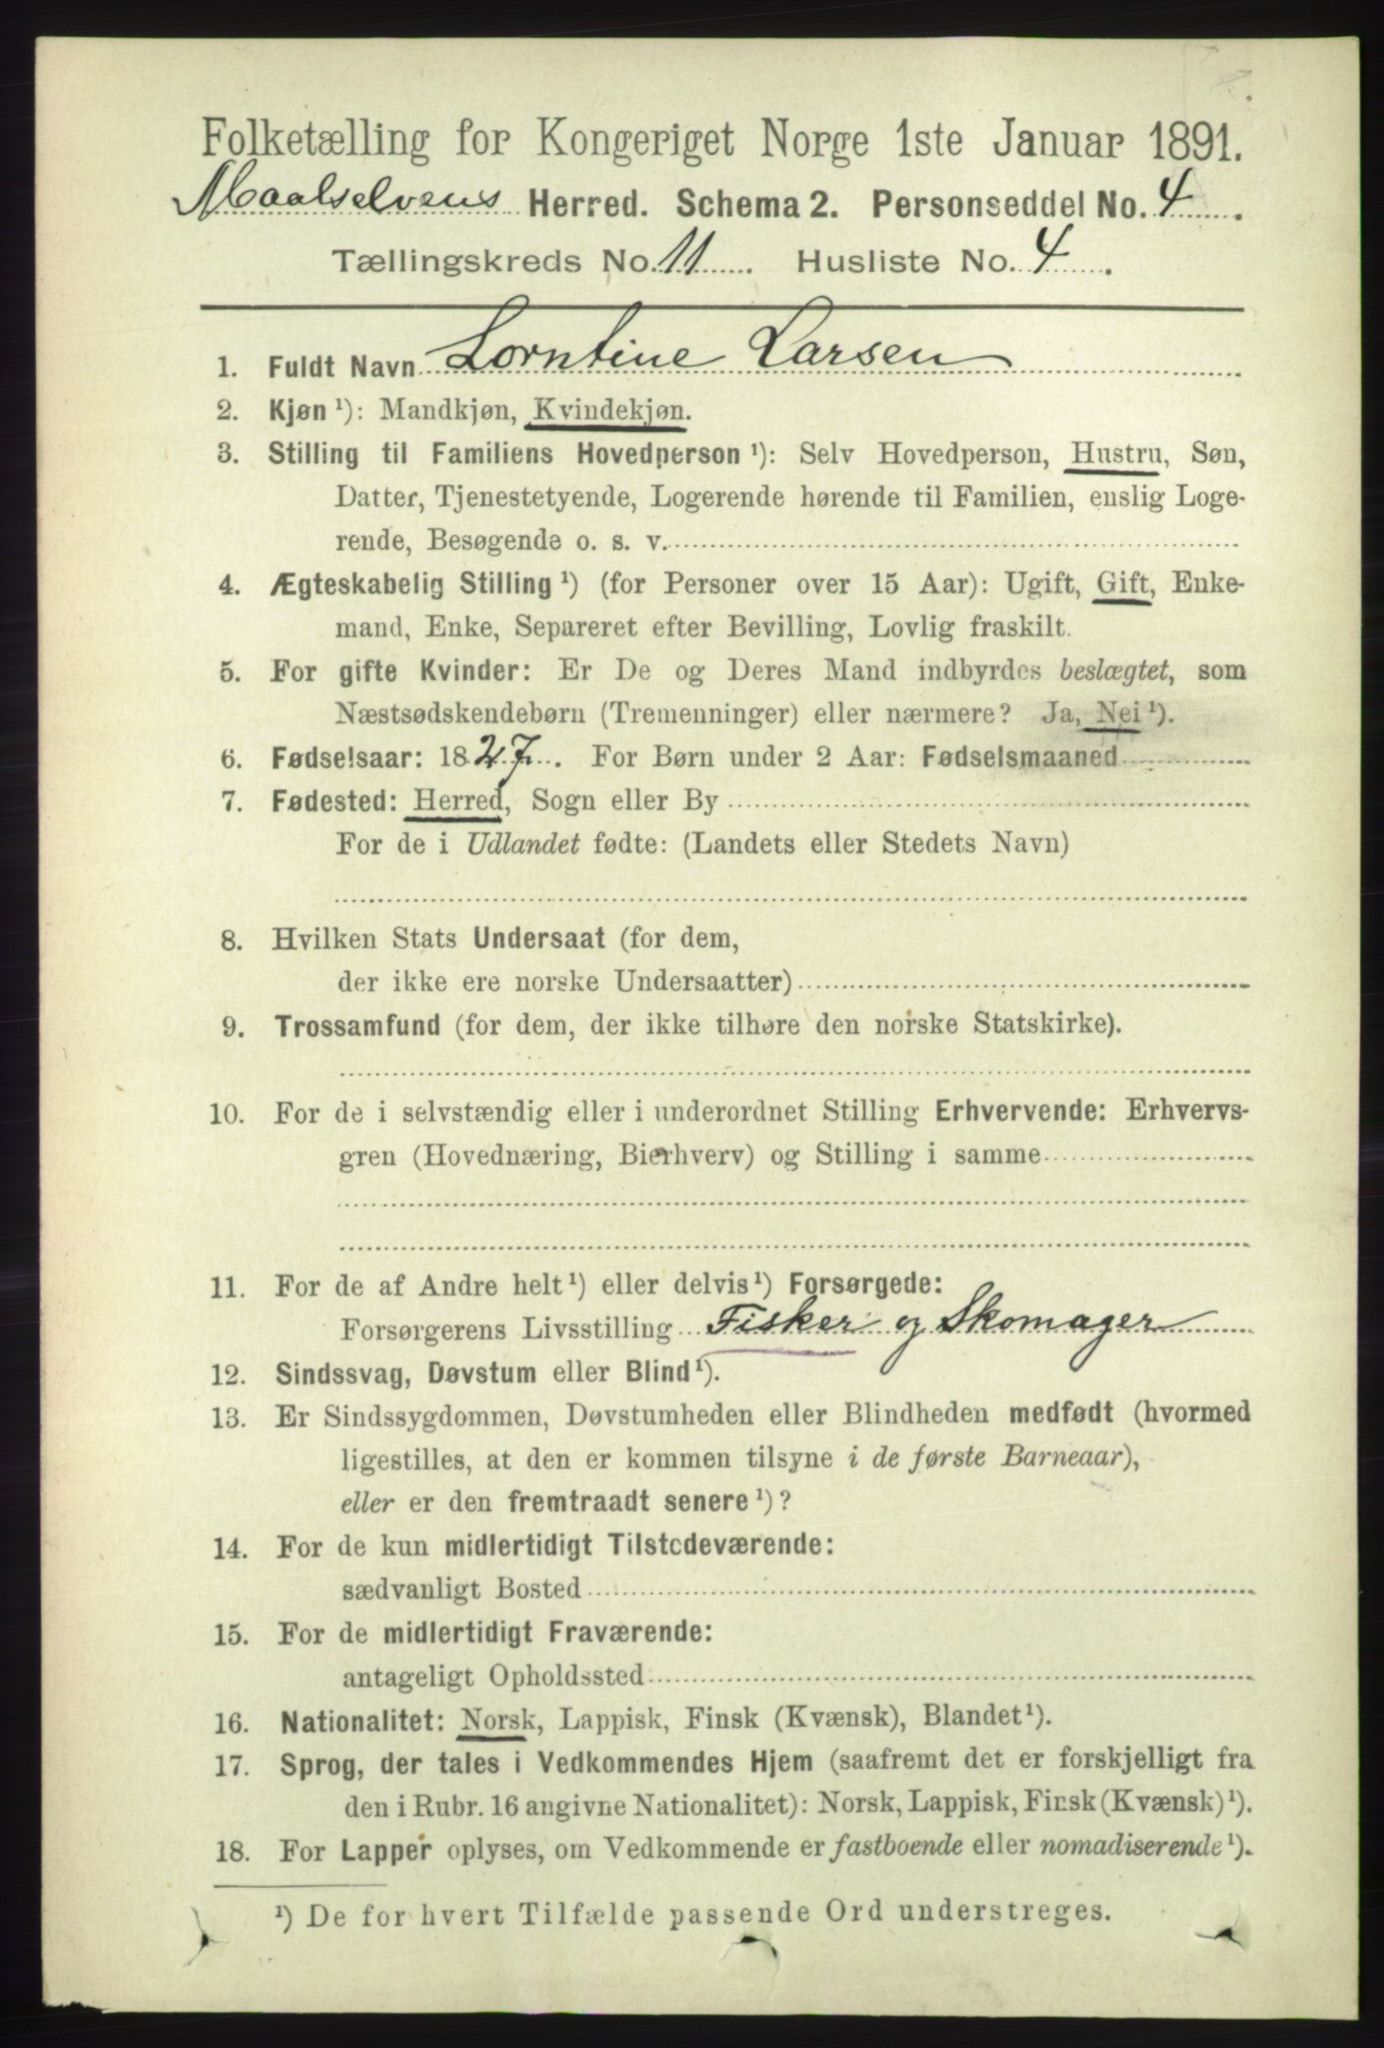 Folketælling for Kongeriget Norge 1ste Januar 1891.
Maalselvens Herred. Schema 2. Personseddel No. 4
Tællingskreds No. 11 Husliste No. 4
1. Fuldt Navn Lorntine Larsen
2. Kjøn ¹): Mandkjøn, Kvindekjøn.
3. Stilling til Familiens Hovedperson ¹): Selv Hovedperson, Hustru, Søn,
Datter, Tjenestetyende, Logerende hørende til Familien, enslig Loge-
rende, Besøgende o. s. v.
4. Ægteskabelig Stilling ¹) (for Personer over 15 Aar): Ugift, Gift, Enke-
mand, Enke, Separeret efter Bevilling, Lovlig fraskilt.
5. For gifte Kvinder: Er De og Deres Mand indbyrdes beslægtet, som
Næstsødskendebørn (Tremenninger) eller nærmere? Ja, Nei ¹).
6. Fødselsaar: 1827. For Børn under 2 Aar: Fødselsmaaned
7. Fødested: Herred, Sogn eller By
For de i Udlandet fødte: (Landets eller Stedets Navn)
8. Hvilken Stats Undersaat (for dem,
der ikke ere norske Undersaatter)
9. Trossamfund (for dem, der ikke tilhøre den norske Statskirke).
10. For de i selvstændig eller i underordnet Stilling Erhvervende: Erhvervs-
gren (Hovednæring, Bierhverv) og Stilling i samme
11. For de af Andre helt ¹) eller delvis ¹) Forsørgede:
Forsørgerens Livsstilling Fisker og Skomager
12. Sindssvag, Døvstum eller Blind ¹).
13. Er Sindssygdommen, Døvstumheden eller Blindheden medfødt (hvormed
ligestilles, at den er kommen tilsyne i de første Barneaar),
eller er den fremtraadt senere ¹)?
14. For de kun midlertidigt Tilstedeværende:
sædvanligt Bosted
15. For de midlertidigt Fraværende:
antageligt Opholdssted
16. Nationalitet: Norsk, Lappisk, Finsk (Kvænsk), Blandet ¹).
17. Sprog, der tales i Vedkommendes Hjem (saafremt det er forskjelligt fra
den i Rubr. 16 angivne Nationalitet): Norsk, Lappisk, Finsk (Kvænsk) ¹).
18. For Lapper oplyses, om Vedkommende er fastboende eller nomadiserende ¹).
¹) De for hvert Tilfælde passende Ord understreges.